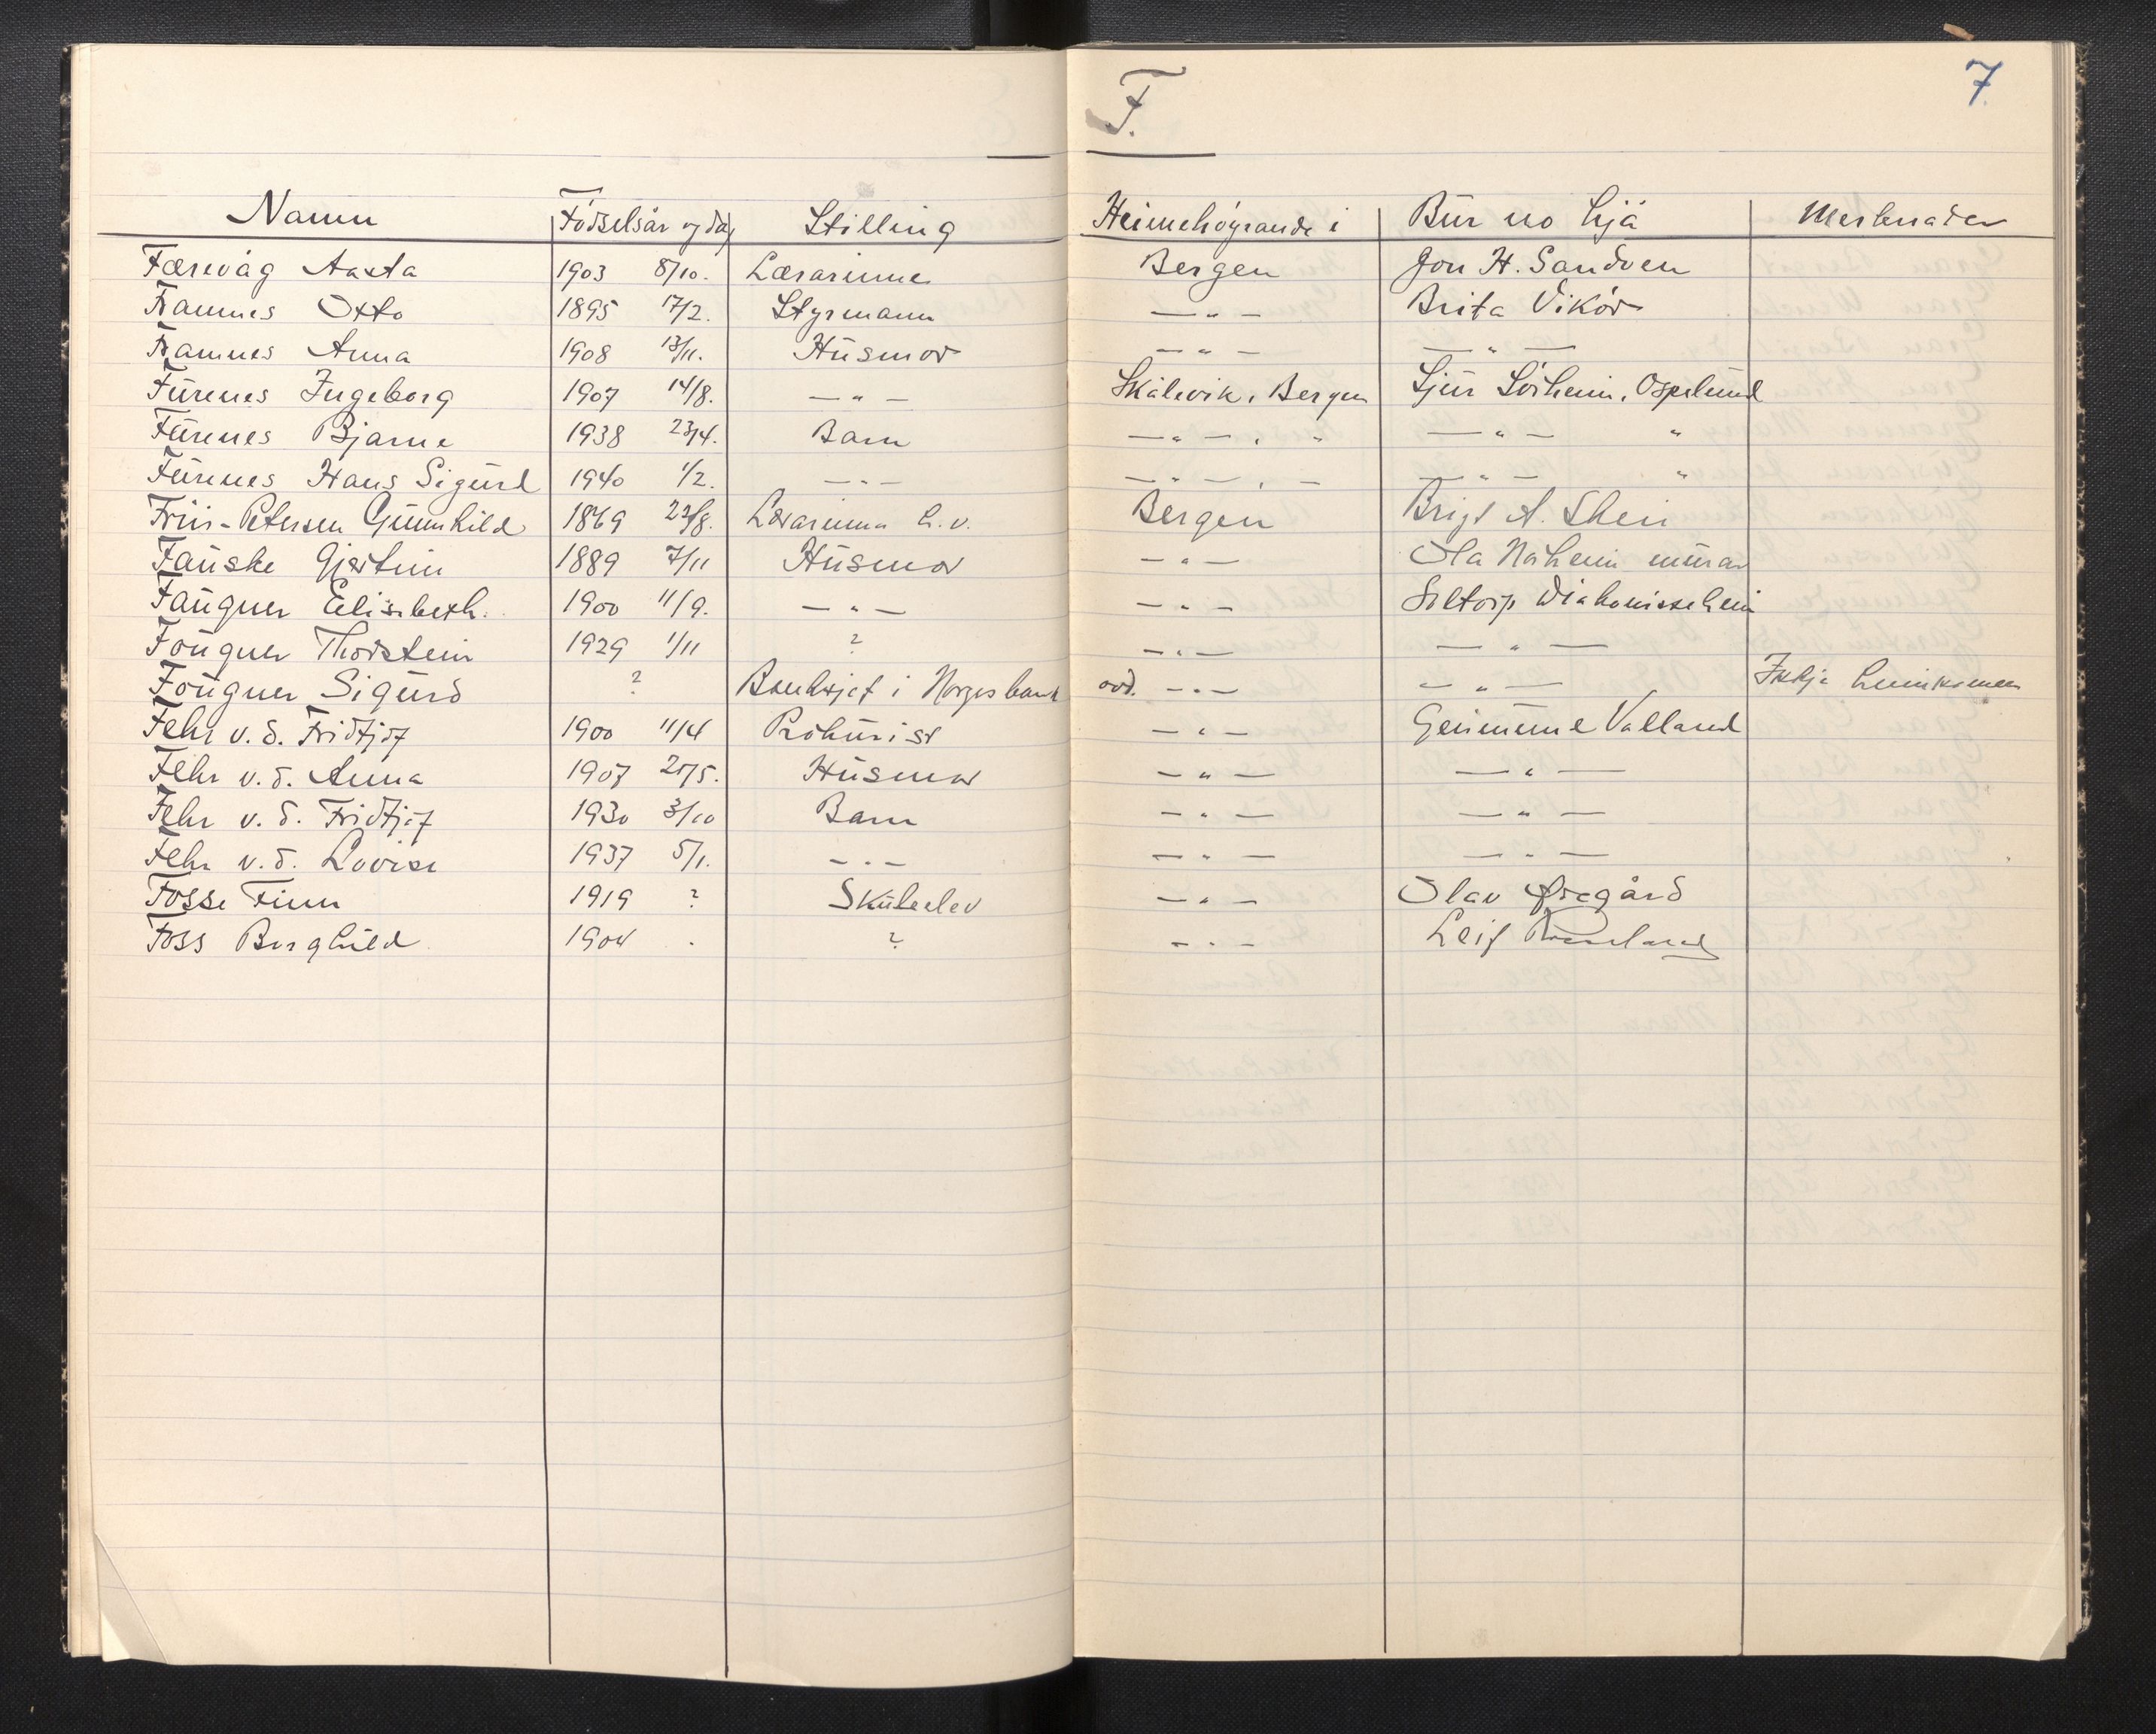 F. 7.
Namn Fødselsår og dag Stilling Heimehøyrande i Bur no hjå Merknader
Færevåg Aasta 1903 8/10. Lærarinne Bergen Jon H. Sandven
Framnes Otto 1895 17/2. Styrmann — " — Brita Vikør
Framnes Anna 1908 13/11. Husmor — " — — " —
Furenes Ingeborg 1907 14/8. — " — Skålevik, Bergen Sjur Sörheim, Ospelund
Furenes Bjarne 1938 23/4. Barn — " — , " — " — "
Furenes Hans Sigurd 1940 1/2. — " — — " — , — — " — "
Friis-Petersen Gunnhild 1869 23/8. Lærarinna h. v. Bergen Brigt A. Skeie
Fauske Gjertine 1889 7/11 Husmor — " — Ola Nåheim murar
Fougner Elisabeth. 1900 11/9. — " — — " — Soltorp Diakonisseheim
Fougner Thorstein 1929 1/11 ? — " — — " —
Fougner Sigurd ? i Norges bank — " — — " — Ikkje
Fehr v. d. Fridtjof 1900 11/4 Prokurist — " — Valland
Fehr v. d. Anna 1907 Husmor — " — — " —
Fehr v. d. Fridtjof 1930 3/10 Barn — " — — " —
Fehr v. d. Lovise 1937 5/1. — " — — " — — " —
Fosse Finn 1919 ? Skuleelev — " — Olav Øregård
Foss Borghild 1904 . ? — " — Leif